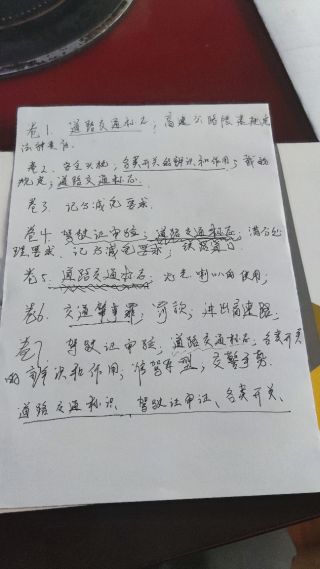 卷1. 道路交通标志; 高速公路
法
卷2. 安全头枕; 各类开关的辨识和作用;
规定; 道路交通标志.
卷3. 记分减免要求.
卷4. 驾驶证审验; 道路交通标志; 满分处
理要求. 记分减免要求;
卷5. 道路交通标志. 灯光喇叭的使用;
卷6. 交通肇事罪; 罚款; 进出高速路.
卷7 驾驶证审验; 道路交通标志; 各类开关
的 和作用; 准驾车型; 交警手势.
道路交通标识、驾驶证审证、各类开关、